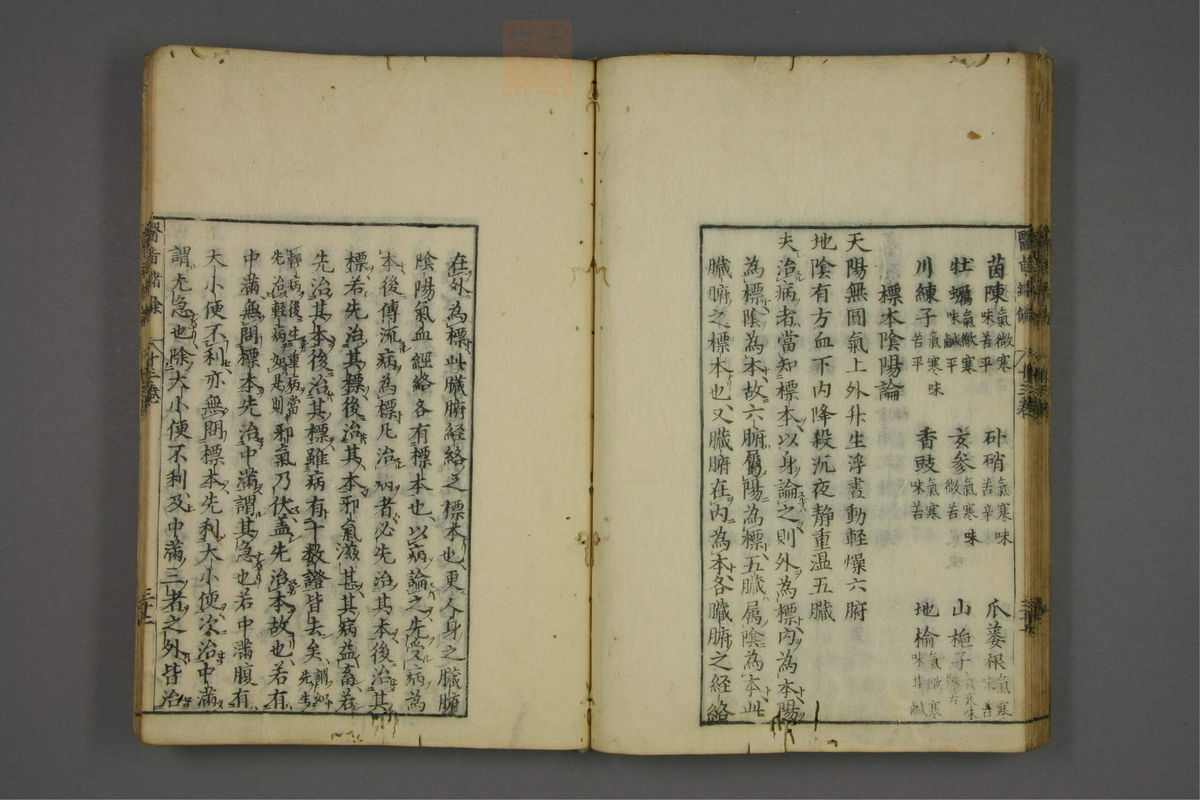 茵陳氣微寒味苦平 卟硝氣寒味苦辛 瓜蔞根氣寒味苦
牡蠣氣微寒味鹹平 玄参氣寒味微苦 山梔子氣寒味
川練子氣寒味苦平 香豉氣寒味苦 地榆氣微寒味甘鹹
標本陰陽論
天陽無圓氣上外升生浮晝動軽燥六腑
地陰有方血下内降殺沉夜静重温五臓
夫治病者當知標本以身論之則外為標内為本陽
為標陰為本故六腑属陽為標五臓属陰為本此
臓腑之標本也又臓腑在内為本各臓腑之経絡
在外為標此臓腑経絡之標本也更人身之臓腑
陰陽氣血経絡各有標本也以病論之先受病為
本後傳流病為標凡治病者必先治其本後治其
標若先治其標後治其本邪氣滋甚其病益畜若
先治其本後治其標雖病有十数證皆去矣謂如先生
軽病後生重病當先治軽病如是則邪氣乃伏盖先治本故也若有
中滿無問標本先治中滿謂其急也若中滿腹有
大小便不利亦無問標本先利大小便次治中滿
謂尤急也除大小便不利及中滿三者之外皆治
三十二